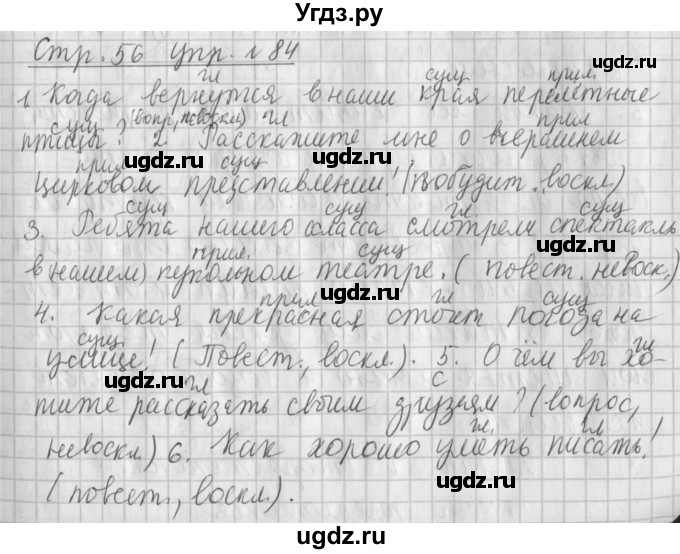 Угдз.ру
Стр. 56 упр. № 84
гл сущ прил.
1. Когда вернутся в наши края перелётные
сущ (вопр, невоскл) гл прил
птицы? 2. Расскажите мне о вчерашнем
прил сущ
цирковом представлении! (Побудит. воскл.)
сущ сущ гл. сущ
3. Ребята нашего класса смотрели спектакль
прил. сущ
в (нашем) кукольном театре. (повест. невоск.)
прил гл сущ
4. Какая прекрасная стоит погода на
сущ гл
улице! (Повест., воскл.). 5. О чём вы хо-
гл с
тите рассказать своим друзьям? (вопрос,
гл. гл
невоскл) 6. Как хорошо уметь писать!
(повест., воскл.).
uгдз.ru
uгдз.ru
uгдз.ru
uгдз.ru
uгдз.ru
uгдз.ru
uгдз.ru
uгдз.ru
uгдз.ru